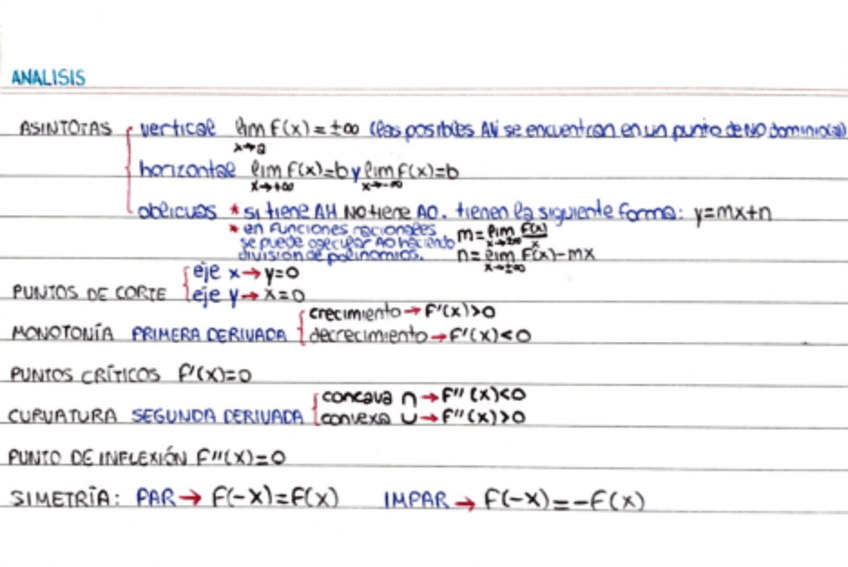 ANALISIS
ASINTOTAS vertical lim f(x) = ±∞ (las posibles AV se encuentran en un punto de NO dominio(a))
x→a
horizontal lim f(x)=b y lim f(x)=b
x→+∞ x→-∞
oblicuas * si tiene AH NO tiene AO. tienen la siguiente forma: y=mx+n
* en funciones racionales m= lim f(x)/x
se puede calcular AO haciendo x→±∞
división de polinomios. n= lim f(x)-mx
x→±∞
eje x→y=0
PUNTOS DE CORTE eje y→x=0
crecimiento→f'(x)>0
MONOTONÍA PRIMERA DERIVADA decrecimiento→f'(x)<0
PUNTOS CRÍTICOS f'(x)=0
concava ∩→f''(x)<0
CURVATURA SEGUNDA DERIVADA convexa ∪→f''(x)>0
PUNTO DE INFLEXIÓN f''(x)=0
SIMETRÍA: PAR→ f(-x)=f(x) IMPAR→ f(-x)=-f(x)